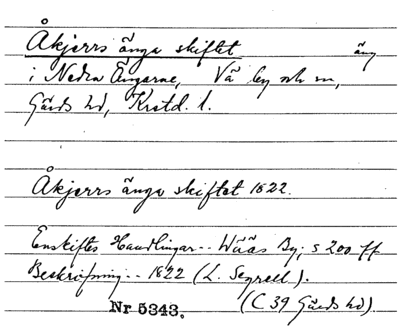 Åkjerrs änga skiftet äng
i Nedra Ängarne, Vä by och sn,
Gärds hd, Krstd. l.
Åkjerrs änga skiftet 1822.
Enskiftes Handlingar -- Wääs By; s 200 ff
Beskrifning -- 1822 (L. Segrell).
Nr 5343. (C 39 Gärds hd).